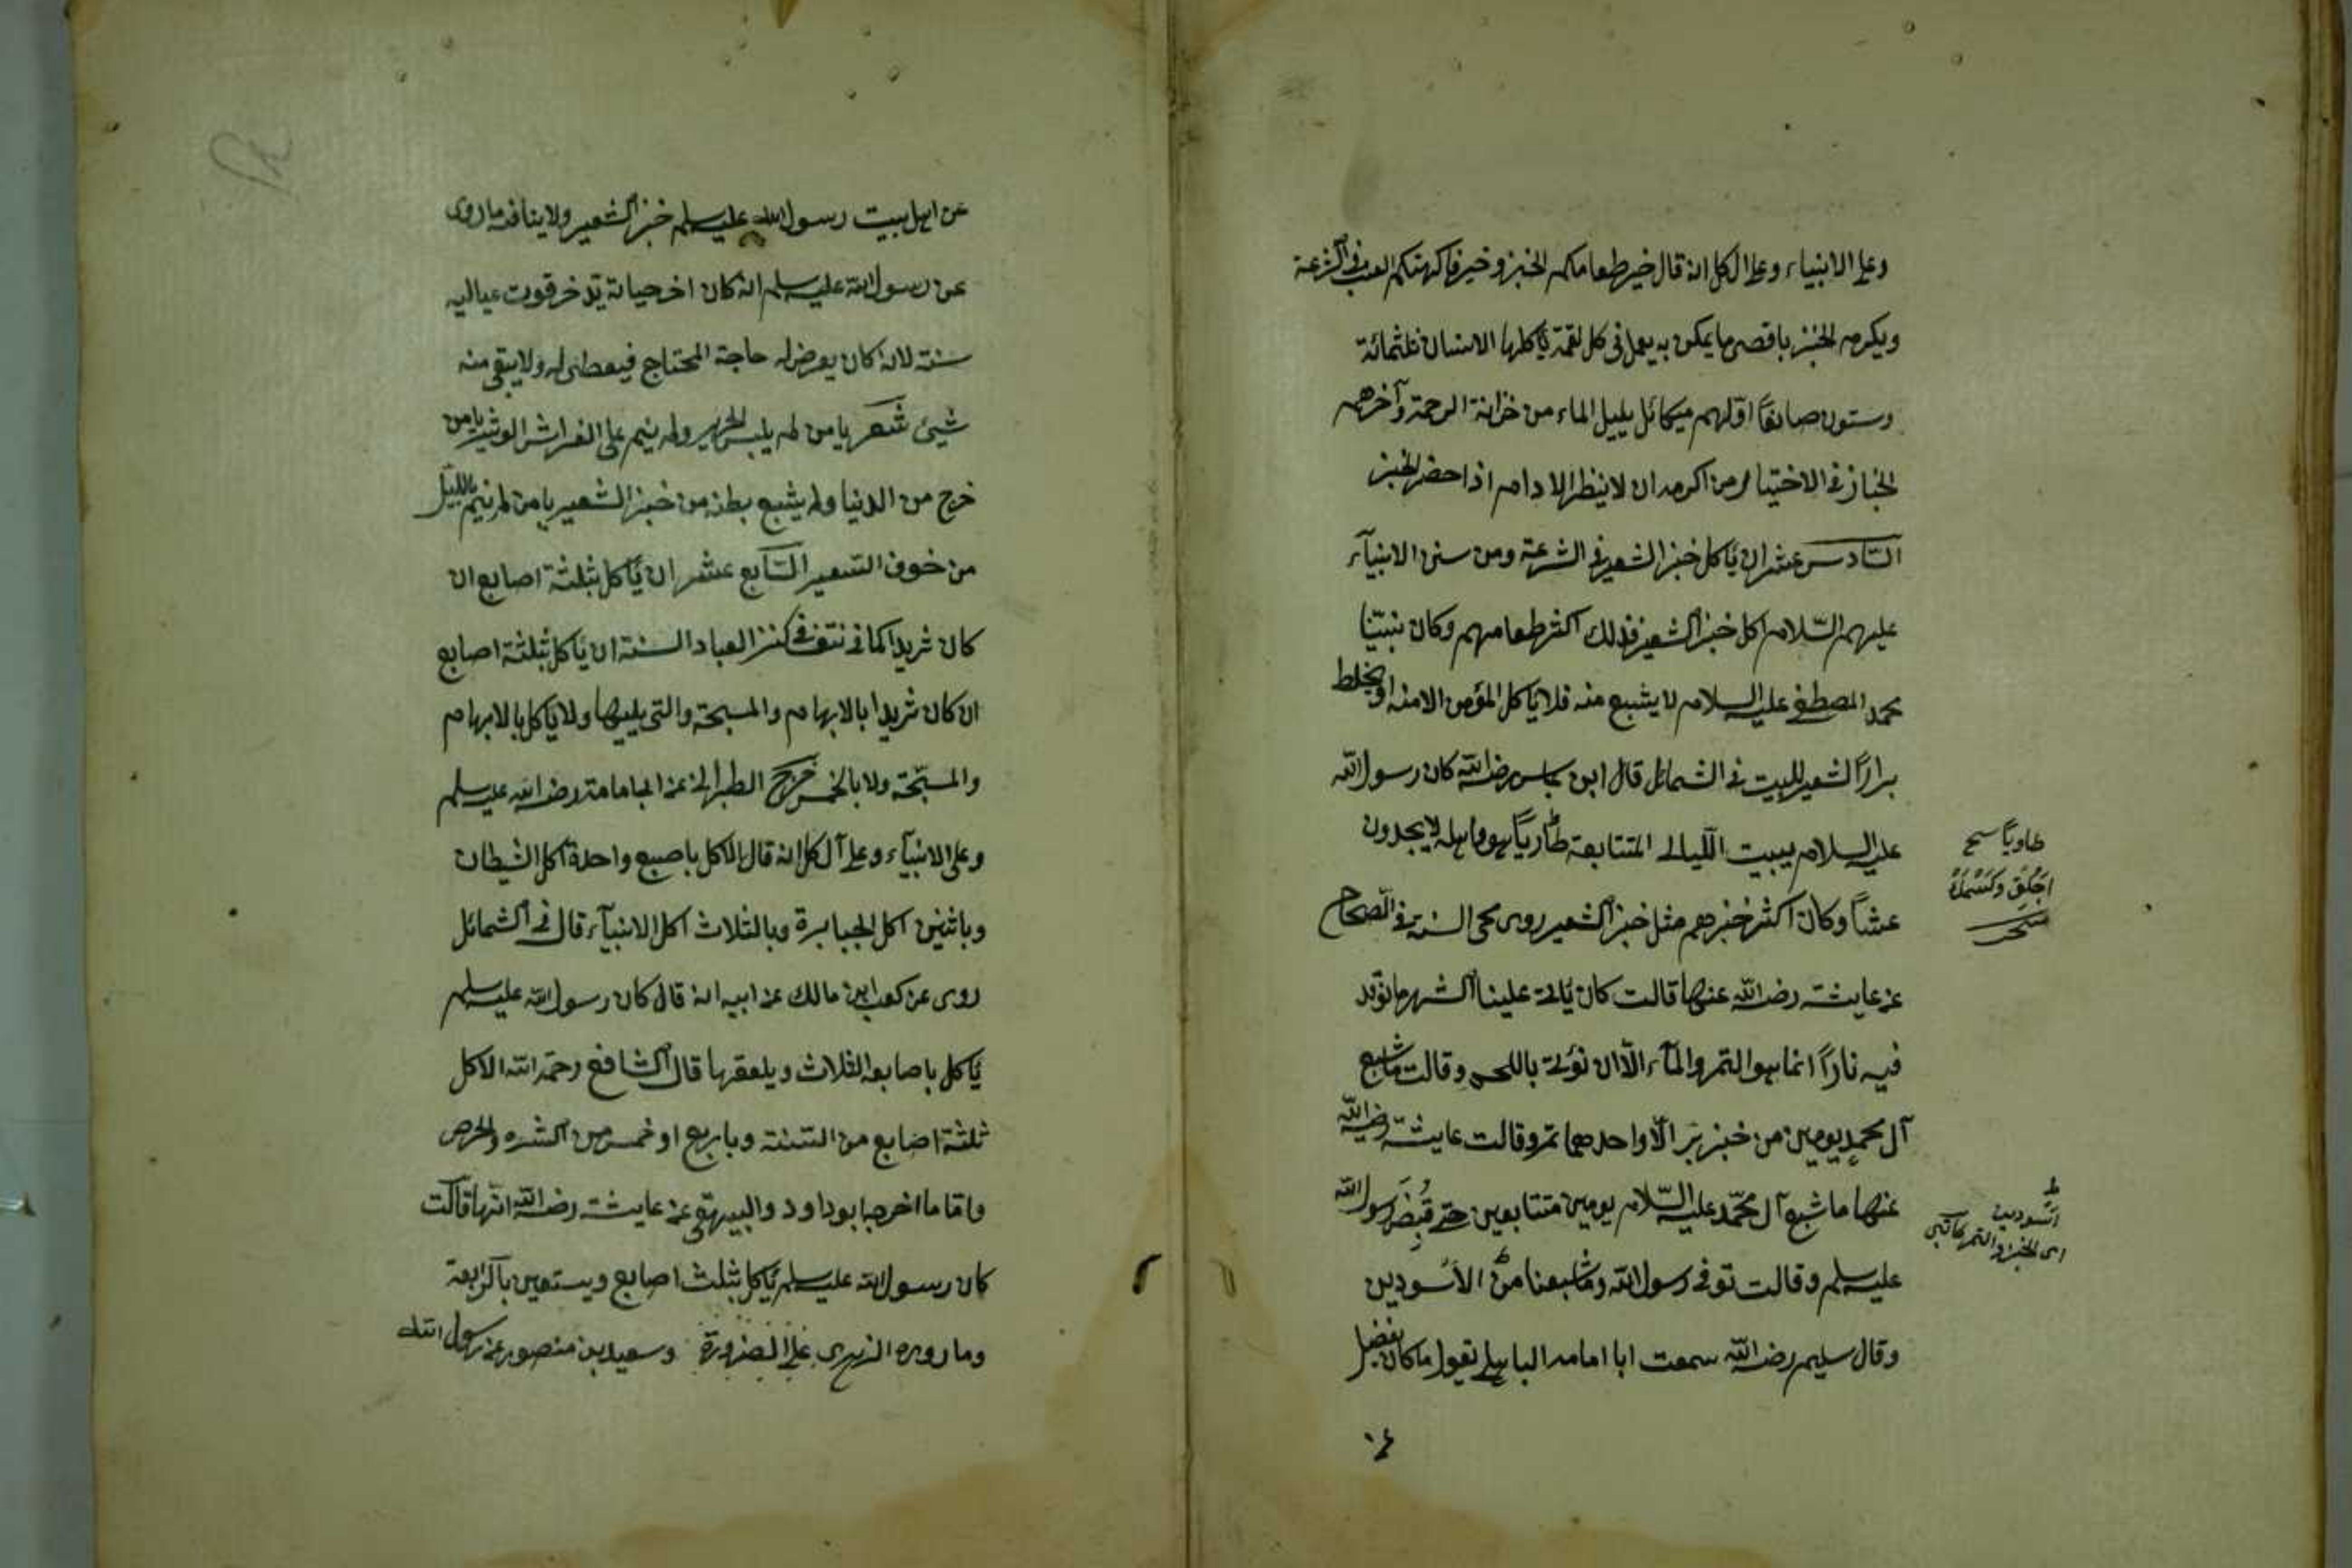 وعلى الانبياء وعلى ال كل انه قال خير طعامكم الخبز وخير فاكهتكم العنب فى الشرعة
ويكرم الخبز باقصى ما يمكن به يعمل فى كل لقمة ياكلها الانسان ثلثمائة
وستون صانعًا اوّلهم ميكائل يليل الماء من خزانة الرحمة وآخرهم
الخباز فى الاختيار من اكرمه ان لا ينظر الادام اذا حضر الخبز
السّادس عشر ان ياكل خبز الشعير فى الشرعة ومن سنن الانبيآء
عليهم السّلام اكل خبز الشعير فذلك اكثر طعامهم وكان نبيّنا
محمد المصطفى عليه السلام لا يشبع منه فلا ياكل المؤمن الا منه او يخلط
برارًا لشعير للبيت فى الشمائل قال ابن عباس رضى الله كان رسول الله
عليه السلام يبيت اللّيالى المتتابعة طاويًا هو واهله لا يجدون
عشاً وكان اكثر خبزهم مثل خبز الشعير روى محى السنة فى الصحاح
عن عايشة رضى الله عنها قالت كان يأتى علينا الشهر ما نوقد
فيه نارًا انما هو التمر والمآء الّا ان نؤتى باللحم وقالت ما شبع
آل محمدٍ يومين من خبز برّ الّا واحدهما تمر وقالت عايشة رضى الله
عنها ما شبع آل محمّد عليه السّلام يومين متتابعين حتى قُبِضَ رسول الله
عليه سلم وقالت توفى رسول الله وما شبعنا من الأسودين
وقال سليم رضى الله سمعت ابا امامه الباهلى يقول ما كان يفضل
طاويًا سح
اى الخبز والتمر
عن
عن اهل بيت رسول الله عليه سلم خبز الشعير ولا ينافه ما روى
عن رسول الله عليه سلم انه كان اخر حياته يدّخر قوت عياليه
سنة لانه كان يعرض له حاجة المحتاج فيعطى له ولا يبقى منه
شيئ شعر يا من لم يلبس الحرير ولم ينم على الفراش الوثير يا من
خرج من الدنيا ولم يشبع بطنه من خبز الشعير يا من لم ينم بالليل
من خوف السعير السّابع عشر ان ياكل بثلثة اصابع ان
كان ثريدا كما فى نتف فى كنز العباد السنة ان ياكل بثلثة اصابع
ان كان ثريدا بالابهام والمسبحة والتى يليها ولا ياكل بالابهام
والمسبّحة ولا بالخمس خرج الطبرانى عن ابى امامة رضى الله عليه سلم
وعلى الانبيآء وعلى آل كل انه قال الاكل باصبع واحدة اكل الشيطان
وباثنين اكل الجبابرة وبالثلاث اكل الانبيآء قال فى الشمائل
روى عن كعب ابن مالك عن ابيه انه قال كان رسول الله عليه سلم
ياكل باصابعه الثلاث ويلعقها قال الشافعى رحمه الله الاكل
ثلثة اصابع من السّنة وباربع او خمس من الشره والحرص
وامّا ما اخرجه ابو داود والبيهقى عن عايشة رضى الله انّها قالت
كان رسول الله عليه سلم ياكل بثلث اصابع ويستعين بالرّابعة
وما رويه الزهرى على الضرورة وسعيد بن منصور عن رسول الله